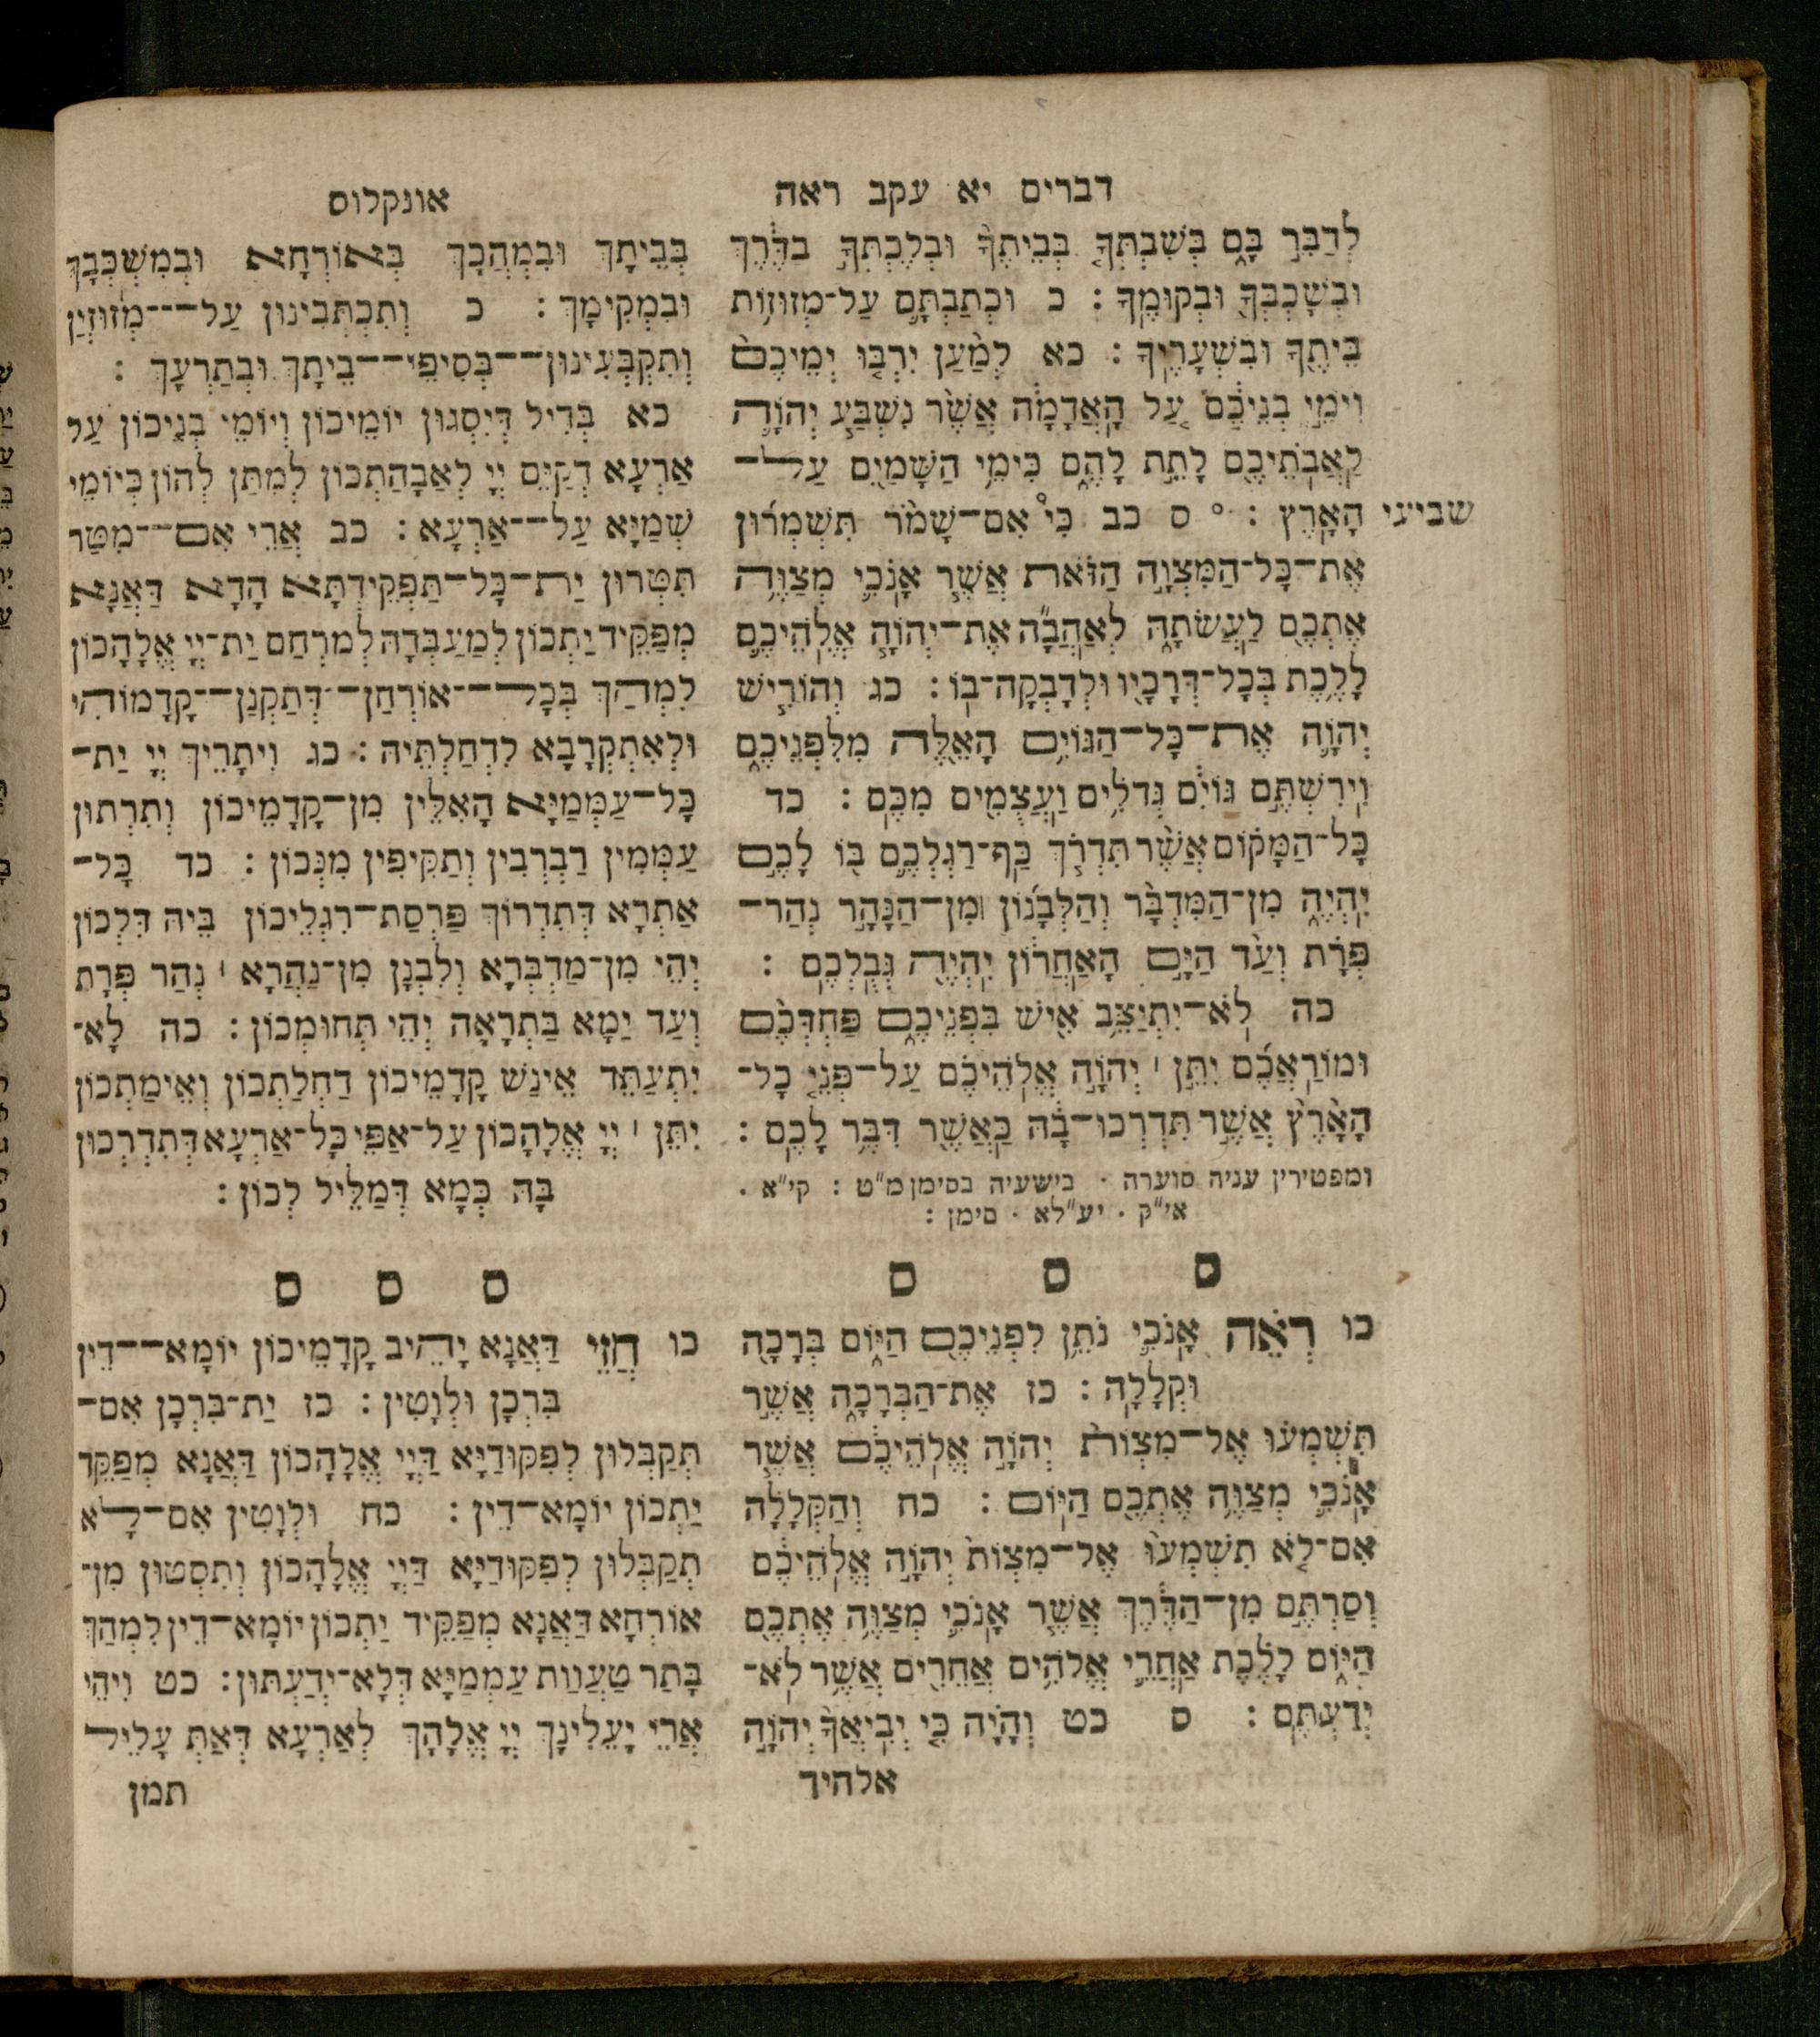 דברים יא עקב ראה
לְדַבֵּ֣ר בָּ֑ם בְּשִׁבְתְּךָ֤ בְּבֵיתֶ֙ךָ֙ וּבְלֶכְתְּךָ֣ בַדֶּ֔רֶךְ
וּבְשָׁכְבְּךָ֖ וּבְקוּמֶֽךָ : כ וּכְתַבְתָּ֛ם עַל־מְזוּז֥וֹת
בֵּיתֶ֖ךָ וּבִשְׁעָרֶֽיךָ : כא לְמַ֨עַן יִרְבּ֤וּ יְמֵיכֶם֙
וִימֵ֣י בְנֵיכֶ֔ם עַ֚ל הָֽאֲדָמָ֔ה אֲשֶׁ֨ר נִשְׁבַּ֧ע יְהוָֹ֛ה
לַֽאֲבֹֽתֵיכֶ֖ם לָתֵ֣ת לָהֶ֑ם כִּימֵ֥י הַשָּׁמַ֖יִם עַל־
שביעי הָאָֽרֶץ : ° ס כב כִּי֩ אִם־שָׁמֹ֨ר תִּשְׁמְר֜וּן
אֶת־כָּל־הַמִּצְוָ֣ה הַזֹּ֗את אֲשֶׁ֧ר אָֽנֹכִ֛י מְצַוֶּ֥ה
אֶתְכֶ֖ם לַֽעֲשֹׂתָ֑הּ לְאַֽהֲבָ֞ה אֶת־יְהוָֹ֧ה אֱלֹֽהֵיכֶ֛ם
לָלֶ֥כֶת בְּכָל־דְּרָכָ֖יו וּלְדָבְקָה־בֽוֹ : כג וְהוֹרִ֧ישׁ
יְהוָֹ֛ה אֶת־כָּל־הַגּוֹיִ֥ם הָאֵ֖לֶּה מִלִּפְנֵיכֶ֑ם
וִֽירִשְׁתֶּ֣ם גּוֹיִ֔ם גְּדֹלִ֥ים וַֽעֲצֻמִ֖ים מִכֶּֽם : כד
כָּל־הַמָּק֗וֹם אֲשֶׁ֨ר תִּדְרֹ֧ךְ כַּֽף־רַגְלְכֶ֛ם בּ֖וֹ לָכֶ֣ם
יִֽהְיֶ֑ה מִן־הַמִּדְבָּ֨ר וְהַלְּבָנ֜וֹן וּמִן־הַנָּהָ֣ר נְהַר־
פְּרָ֗ת וְעַד֙ הַיָּ֣ם הָאַֽחֲר֔וֹן יִֽהְיֶ֖ה גְּבֻֽלְכֶֽם :
כה לֹֽא־יִתְיַצֵּ֥ב אִ֖ישׁ בִּפְנֵיכֶ֑ם פַּחְדְּכֶ֨ם
וּמוֹרַֽאֲכֶ֜ם יִתֵּ֣ן ׀ יְהוָֹ֣ה אֱלֹֽהֵיכֶ֗ם עַל־פְּנֵ֤י כָל־
הָאָ֨רֶץ֙ אֲשֶׁ֣ר תִּדְרְכוּ־בָ֔הּ כַּֽאֲשֶׁ֖ר דִּבֶּ֥ר לָכֶֽם :
ומפטירין עניה סוערה · בישעיה בסימן מ״ט : קי״א .
אי״ק · יע״לא · סימן :
ס ס ס
כו רְאֵ֗ה אָֽנֹכִ֛י נֹתֵ֥ן לִפְנֵיכֶ֖ם הַיּ֑וֹם בְּרָכָ֖ה
וּקְלָלָֽה : כז אֶֽת־הַבְּרָכָ֑ה אֲשֶׁ֣ר
תִּשְׁמְע֗וּ אֶל־מִצְוֹת֙ יְהוָֹ֣ה אֱלֹֽהֵיכֶ֔ם אֲשֶׁ֧ר
אָֽנֹכִ֛י מְצַוֶּ֥ה אֶתְכֶ֖ם הַיּֽוֹם : כח וְהַקְּלָלָ֗ה
אִם־לֹ֤א תִשְׁמְעוּ֙ אֶל־מִצְוֹת֙ יְהוָֹ֣ה אֱלֹֽהֵיכֶ֔ם
וְסַרְתֶּ֣ם מִן־הַדֶּ֔רֶךְ אֲשֶׁ֧ר אָֽנֹכִ֛י מְצַוֶּ֥ה אֶתְכֶ֖ם
הַיּ֑וֹם לָלֶ֗כֶת אַֽחֲרֵ֛י אֱלֹהִ֥ים אֲחֵרִ֖ים אֲשֶׁ֥ר לֹֽא־
יְדַעְתֶּֽם : ס כט וְהָיָ֗ה כִּ֤י יְבִֽיאֲךָ֙ יְהוָֹ֣ה
אלהיך
אונקלוס
בְּבֵיתָךְ וּבִמְהֲכָךְ בְּאוֹרְחָא וּבְמִשְׁכְּבָךְ
וּבִמְקִימָךְ : כ וְתִכְתְּבִינוּן עַל־מְזוּזְיַן
וְתִקְבְּעִינוּן־־בְּסִיפֵי־־בֵיתָךְ וּבְתַרְעָךְ :
כא בְּדִיל דְּיִסְגּוּן יוֹמֵיכוֹן וְיוֹמֵי בְנֵיכוֹן עַל
אַרְעָא דְקַיֵּם יְיָ לְאַבָהַתְכוֹן לְמִתַּן לְהוֹן כְּיוֹמֵי
שְׁמַיָּא עַל־־אַרְעָא : כב אֲרֵי אִם־־מִטַּר
תִּטְּרוּן יַת־כָּל־תַּפְקֵידְתָּא הָדָא דַּאֲנָא
מְפַקֵּיד יַתְכוֹן לְמַעְבְּדַהּ לְמִרְחַם יַת־יְיָ אֱלָהָכוֹן
לִמְהַךְ בְּכָל־־אוֹרְחַן־דְּתַקְנַן־קָדָמוֹהִי
וּלְאִתְקְרָבָא לִדְחַלְתֵּיהּ : כג וִיתָרֵיךְ יְיָ יַת־
כָּל־עַמְמַיָּא הָאִלֵּין מִן־קֳדָמֵיכוֹן וְתֵרְתוּן
עַמְמִין רַבְרְבִין וְתַקִּיפִין מִנְּכוֹן : כד כָּל־
אַתְרָא דְּתִדְרוֹךְ פַּרְסַת־רִגְלֵיכוֹן בֵּיהּ דִּלְכוֹן
יְהֵי מִן־מַדְבְּרָא וְלִבְנָן מִן־נַהֲרָא ׀ נְהַר פְּרָת
וְעַד יַמָּא בַּתְרָאָה יְהֵי תְּחוּמְכוֹן : כה לָא־
יִתְעַתַּד אֵינַשׁ קָדָמֵיכוֹן דַּחְלַתְכוֹן וְאֵימַתְכוֹן
יִתֵּן ׀ יְיָ אֱלָהָכוֹן עַל־אַפֵּי כָּל־אַרְעָא דְּתִדְרְכוּן
בַּהּ כְּמָא דְּמַלֵּיל לְכוֹן :
ס ס ס
כו חֲזֵי דַּאֲנָא יָהֵיב קֳדָמֵיכוֹן יוֹמָא־־דֵין
בִּרְכָן וּלְוָטִין : כז יַת־בִּרְכָן אִם־
תְּקַבְּלוּן לְפִקּוּדַיָּא דַּיְיָ אֱלָהָכוֹן דַּאֲנָא מְפַקֵּד
יַתְכוֹן יוֹמָא־דֵין : כח וּלְוָטִין אִם־לָא
תְקַבְּלוּן לְפִקּוּדַיָּא דַּיְיָ אֱלָהָכוֹן וְתִסְטוּן מִן־
אוֹרְחָא דַּאֲנָא מְפַקֵּיד יַתְכוֹן יוֹמָא־דֵין לִמְהַךְ
בָּתַר טַעֲוַת עַמְמַיָּא דְּלָא־יְדַעְתּוּן : כט וִיהֵי
אֲרֵי יָעֵלִינָךְ יְיָ אֱלָהָךְ לְאַרְעָא דְּאַתְּ עָלֵיל
תמן